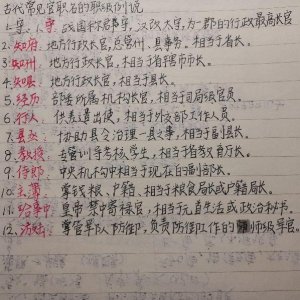 古代常见官职名的职级例说
1.守: 战国称郡守, 汉改太守, 为一郡的行政最高长官
2.知府: 地方行政长官, 总管州、县事务, 相当于省长。
3.知州: 地方行政长官, 相当于省辖市长。
4.知县: 地方行政长官, 相当于县长。
5.经历: 部委所属机构长官, 相当司局级官员
6.行人: 供奉遣出使, 相当于外交部工作人员。
7.县丞: 协助县令治理一县之事, 相当于副县长。
8.教授: 专管训导考核学生, 相当于省教育厅长。
9.侍郎: 中央机构中相当于现在的副部长。
10.主簿: 掌钱粮、户籍, 相当于粮食局长或户籍局长。
11.给事中: 皇帝禁中寄禄官, 相当于元首生活或政治秘书。
12.防御: 掌管军队防御, 负责防御工作的师级军官。